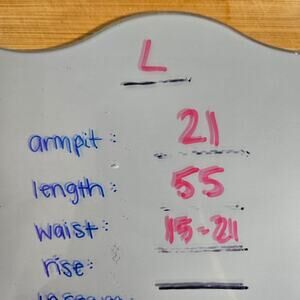 L
armpit: 21
length: 55
waist: 15-21
rise: